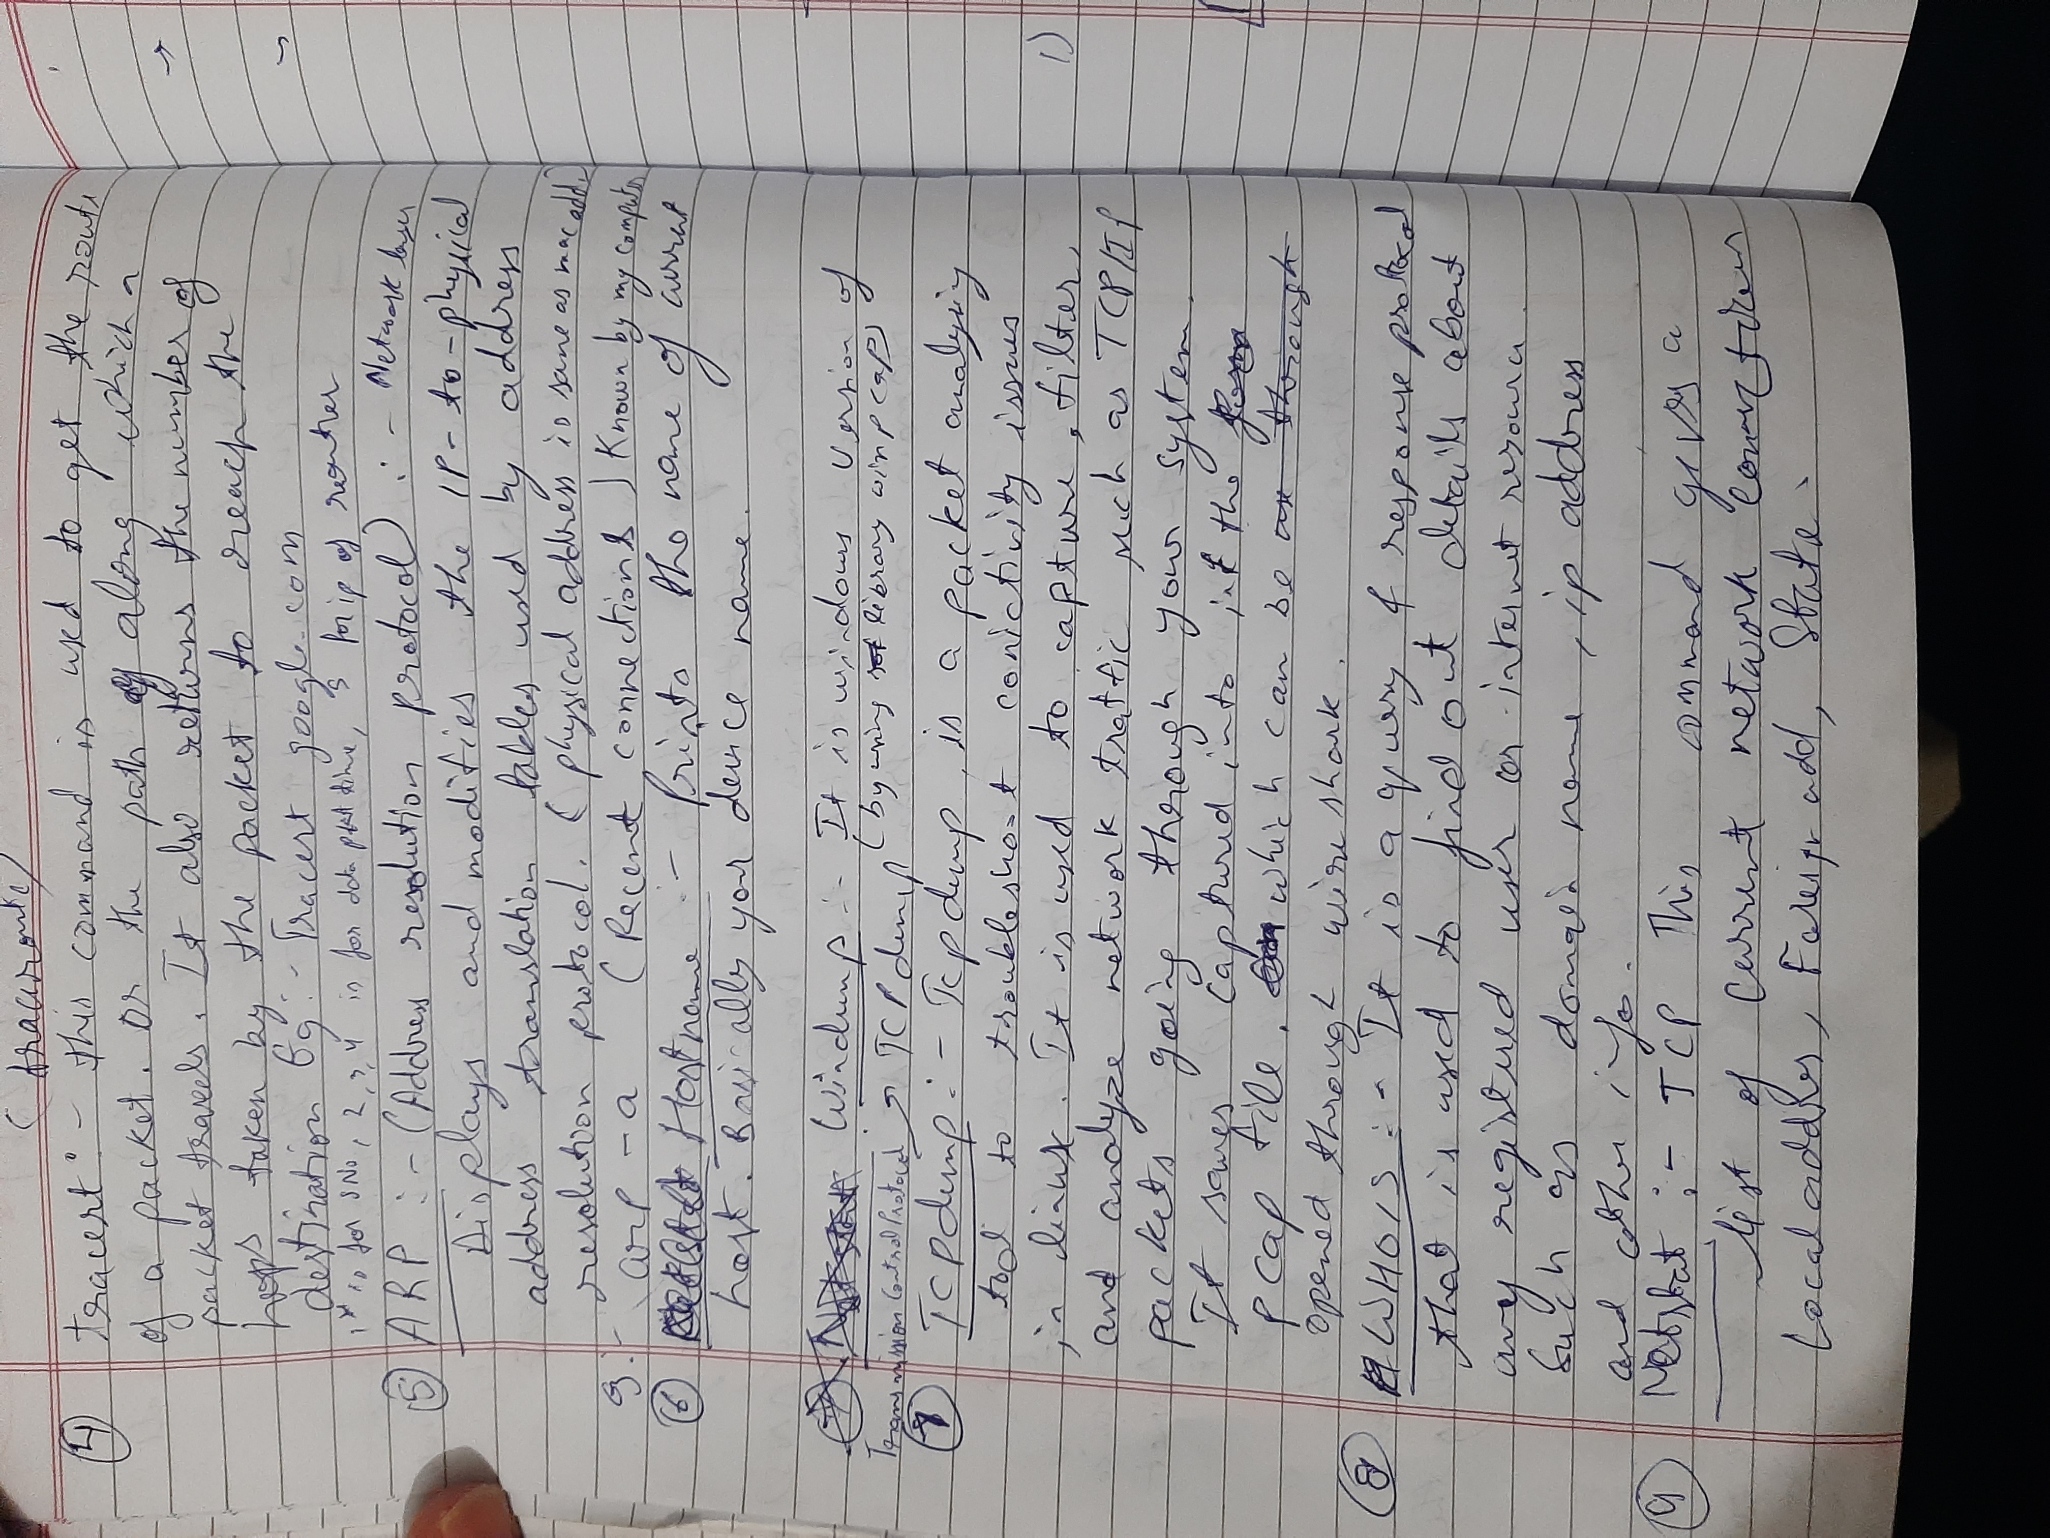 (traceroute)
4 tracert :- this command is used to get the route
of a packet. Or the path of along which a
packet travels. It also returns the number of
hops taken by the packet to reach the
destination Eg :- Tracert google.com
1st is for SNo, 2, 3, 4 is for data time, 5 for ip of
5 ARP :- (Address resolution protocol) :- Network layer
Displays and modifies the IP-to-physical
address translation tables used by address
resolution protocol. (physical address is same as mac add.)
g :- arp -a (Recent connections) Known by my computer
6 Hostname :- Prints the name of current
host. Basically your device name.
7 Windump :- It is windows version of
(by using library winpcap)
Transmission Control Protocol → TCP dump
7 TCPdump :- Tcpdump is a packet analysing
tool to troubleshoot conictivity issues
in linux. It is used to capture, filter,
and analyze network traffic such as TCP/IP
packets going through your system.
It saves captured into the
pcap file. which can be
opened through wire shark.
8 WHOIS :- It is a query & response protocol
that is used to find out details about
any registered user or internet resource.
Such as domain name, ip address
and other info.
9 Netstat :- TCP This command gives a
list of current network connections
Local address, Foreign add, State.
1)